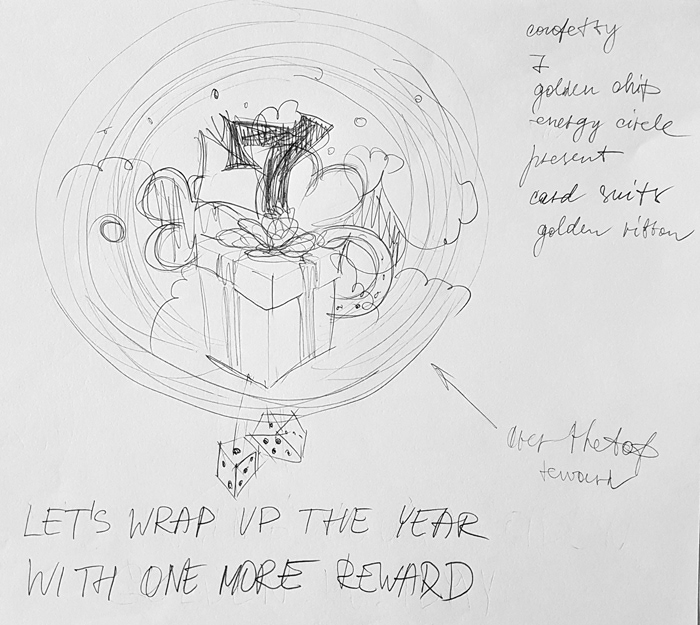 confetty
7
golden chip
energy circle
present
card suits
golden ribbon
7
over the top
reward
LET'S WRAP UP THE YEAR
WITH ONE MORE REWARD